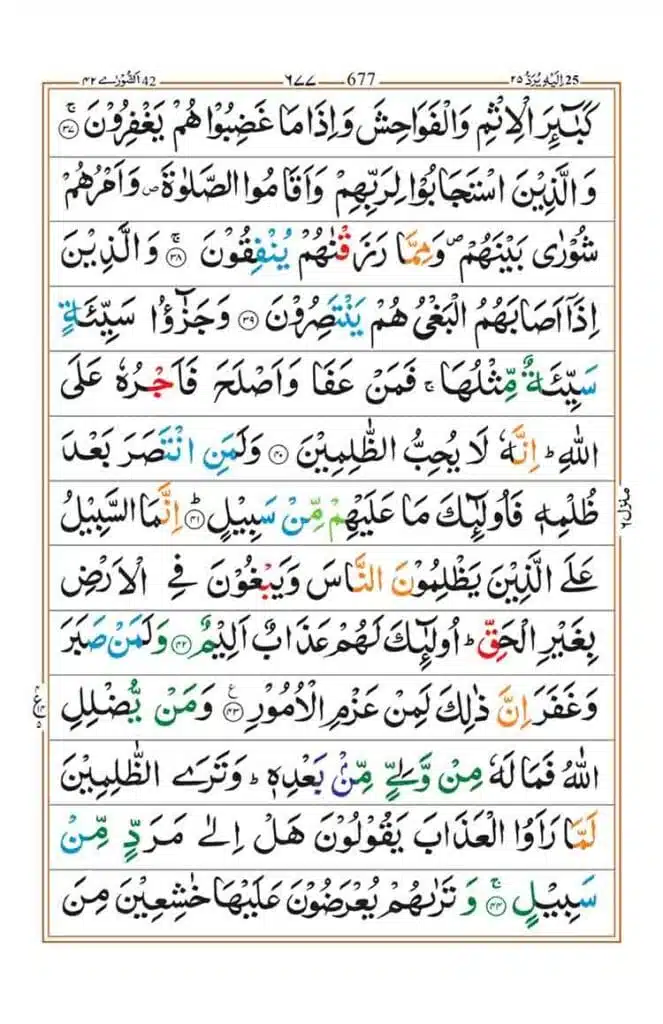 25 اِلَیْهِ یُرَدُّ ۲۵ 677 ٦٧٧ 42 اَلشُّوْرٰے ۴۲
كَبٰٓئِرَ الْاِثْمِ وَالْفَوَاحِشَ وَاِذَا مَا غَضِبُوْا هُمْ يَغْفِرُوْنَ ۚ‏ ﴿۳۷﴾
وَالَّذِيْنَ اسْتَجَابُوْا لِرَبِّهِمْ وَاَقَامُوا الصَّلٰوةَ ۖ وَاَمْرُهُمْ
شُوْرٰى بَيْنَهُمْ ۖ وَمِمَّا رَزَقْنٰهُمْ يُنْفِقُوْنَ ۚ‏ ﴿۳۸﴾ وَالَّذِيْنَ
اِذَاۤ اَصَابَهُمُ الْبَغْىُ هُمْ يَنْتَصِرُوْنَ ﴿۳۹﴾ وَجَزٰٓؤُا سَيِّئَةٍ
سَيِّئَةٌ مِّثْلُهَا ۚ فَمَنْ عَفَا وَاَصْلَحَ فَاَجْرُهٗ عَلَى
اللّٰهِ ؕ اِنَّهٗ لَا يُحِبُّ الظّٰلِمِيْنَ ﴿۴۰﴾ وَلَمَنِ انْتَصَرَ بَعْدَ
ظُلْمِهٖ فَاُولٰٓئِكَ مَا عَلَيْهِمْ مِّنْ سَبِيْلٍ ؕ ﴿۴۱﴾ اِنَّمَا السَّبِيْلُ
عَلَى الَّذِيْنَ يَظْلِمُوْنَ النَّاسَ وَيَبْغُوْنَ فِى الْاَرْضِ
بِغَيْرِ الْحَقِّ ؕ اُولٰٓئِكَ لَهُمْ عَذَابٌ اَلِيْمٌ ﴿۴۲﴾ وَلَمَنْ صَبَرَ
وَغَفَرَ اِنَّ ذٰلِكَ لَمِنْ عَزْمِ الْاُمُوْرِ ﴿۴۳﴾ وَمَنْ يُّضْلِلِ
اللّٰهُ فَمَا لَهٗ مِنْ وَّلِىٍّ مِّنْۢ بَعْدِهٖ ؕ وَتَرَى الظّٰلِمِيْنَ
لَمَّا رَاَوُا الْعَذَابَ يَقُوْلُوْنَ هَلْ اِلٰى مَرَدٍّ مِّنْ
سَبِيْلٍ ۚ ﴿۴۴﴾ وَتَرٰٮهُمْ يُعْرَضُوْنَ عَلَيْهَا خٰشِعِيْنَ مِنَ
منزل ٦